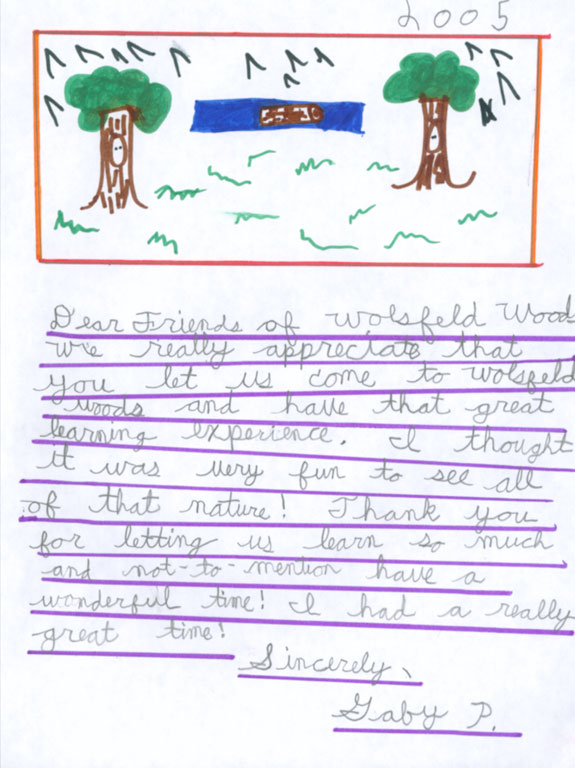 2005
Dear Friends of Wolsfeld Woods
We really appreciate that
you let us come to Wolsfeld
Woods and have that great
learning experience. I thought
it was very fun to see all
of that nature! Thank you
for letting us learn so much
and not-to-mention have a
wonderful time! I had a really
great time!
Sincerely,
Gaby P.